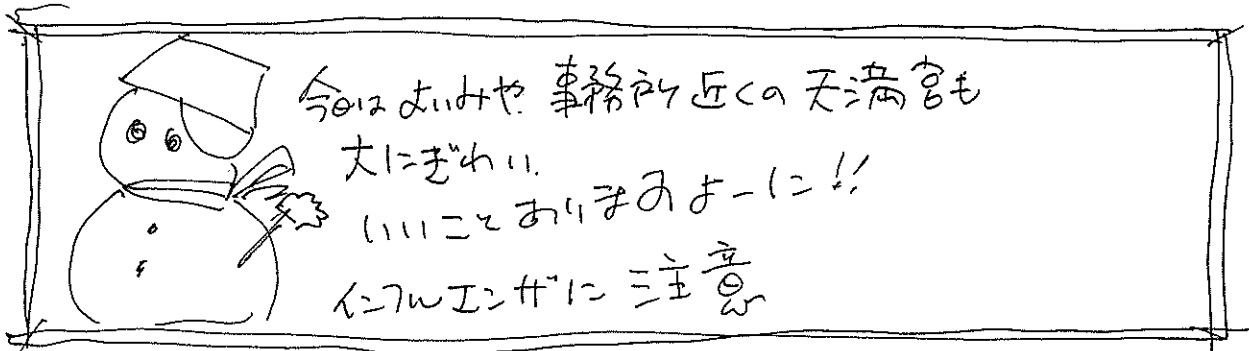 今日はよいみや 事務所近くの天満宮も
大にぎわい.
いいことありますよーに!!
インフルエンザに注意